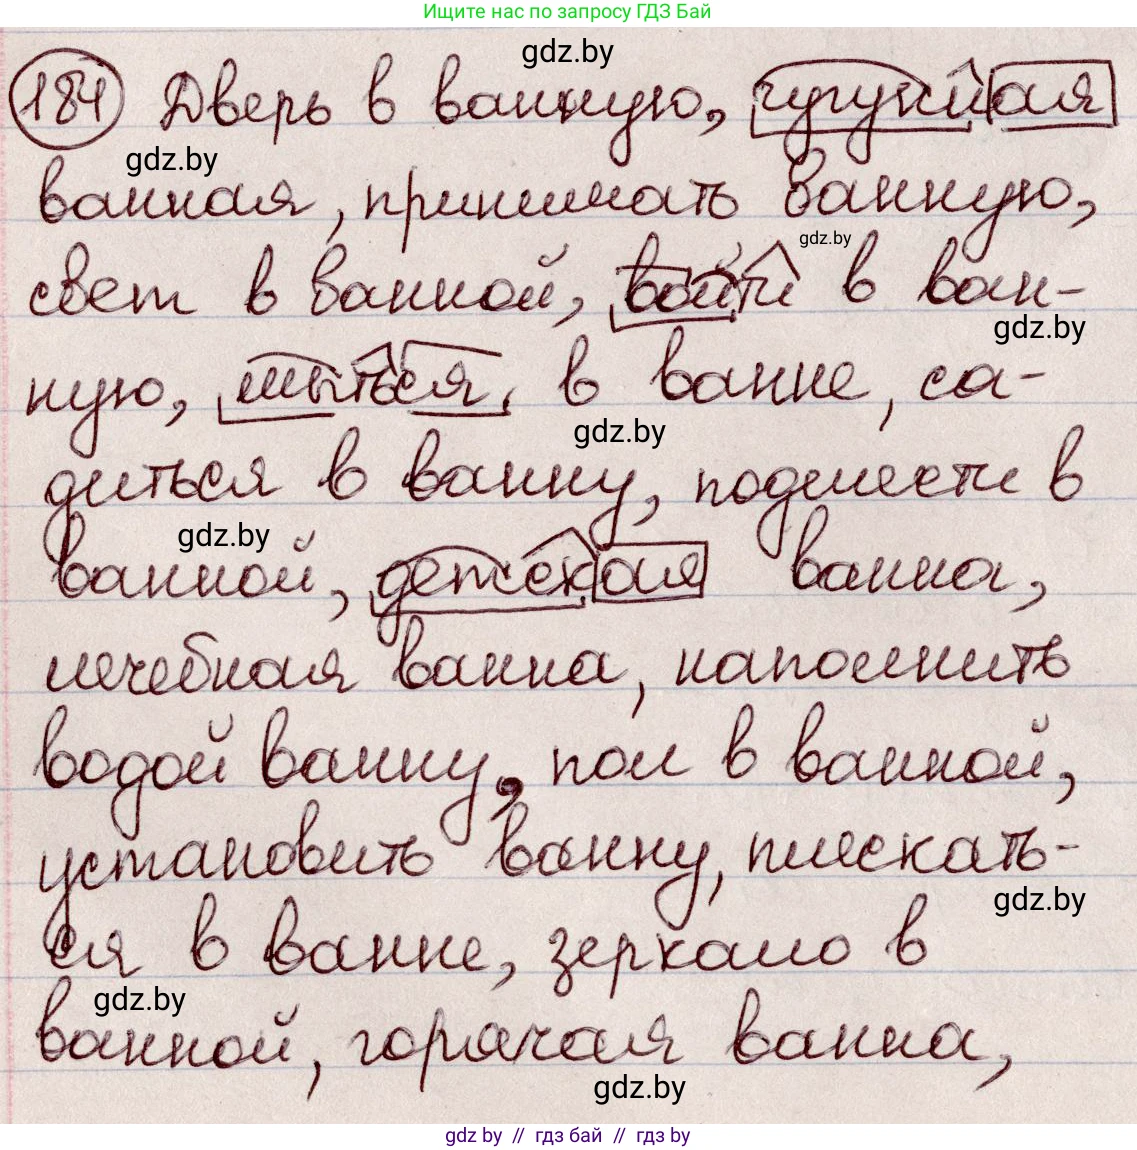 Ищите нас по запросу ГДЗ Бай
gdz.by
184 Дверь в ванную, чугунная
gdz.by
ванная, принимать ванную,
gdz.by
свет в ванной, войти в ван-
gdz.by
ную, мыться, в ванне, са-
gdz.by
диться в ванну, подмести в
gdz.by
ванной, детская ванна,
лечебная ванна, наполнить
водой ванну, пол в ванной,
установить ванну, плескать-
gdz.by
ся в ванне, зеркало в
gdz.by
ванной, горячая ванна,
gdz.by
gdz by // гдз бай // гдз by